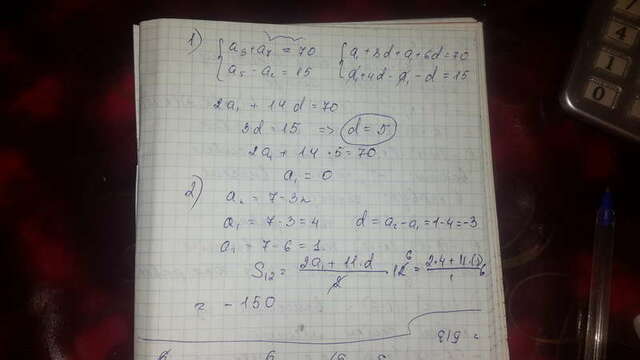 1)
{ a₉ + a₇ = 70 { a₁ + 8d + a₁ + 6d = 70
{ a₅ - a₂ = 15 { a₁ + 4d - a₁ - d = 15
2a₁ + 14d = 70
3d = 15 => d = 5
2a₁ + 14 · 5 = 70
a₁ = 0
2)
aₙ = 7 - 3n
a₁ = 7 - 3 = 4 d = a₂ - a₁ = 1 - 4 = -3
a₂ = 7 - 6 = 1
S₁₂ = (2a₁ + 11·d)/2 · 12 6 = (2·4 + 11·(-3))/1 · 6
= -150
4
1
0